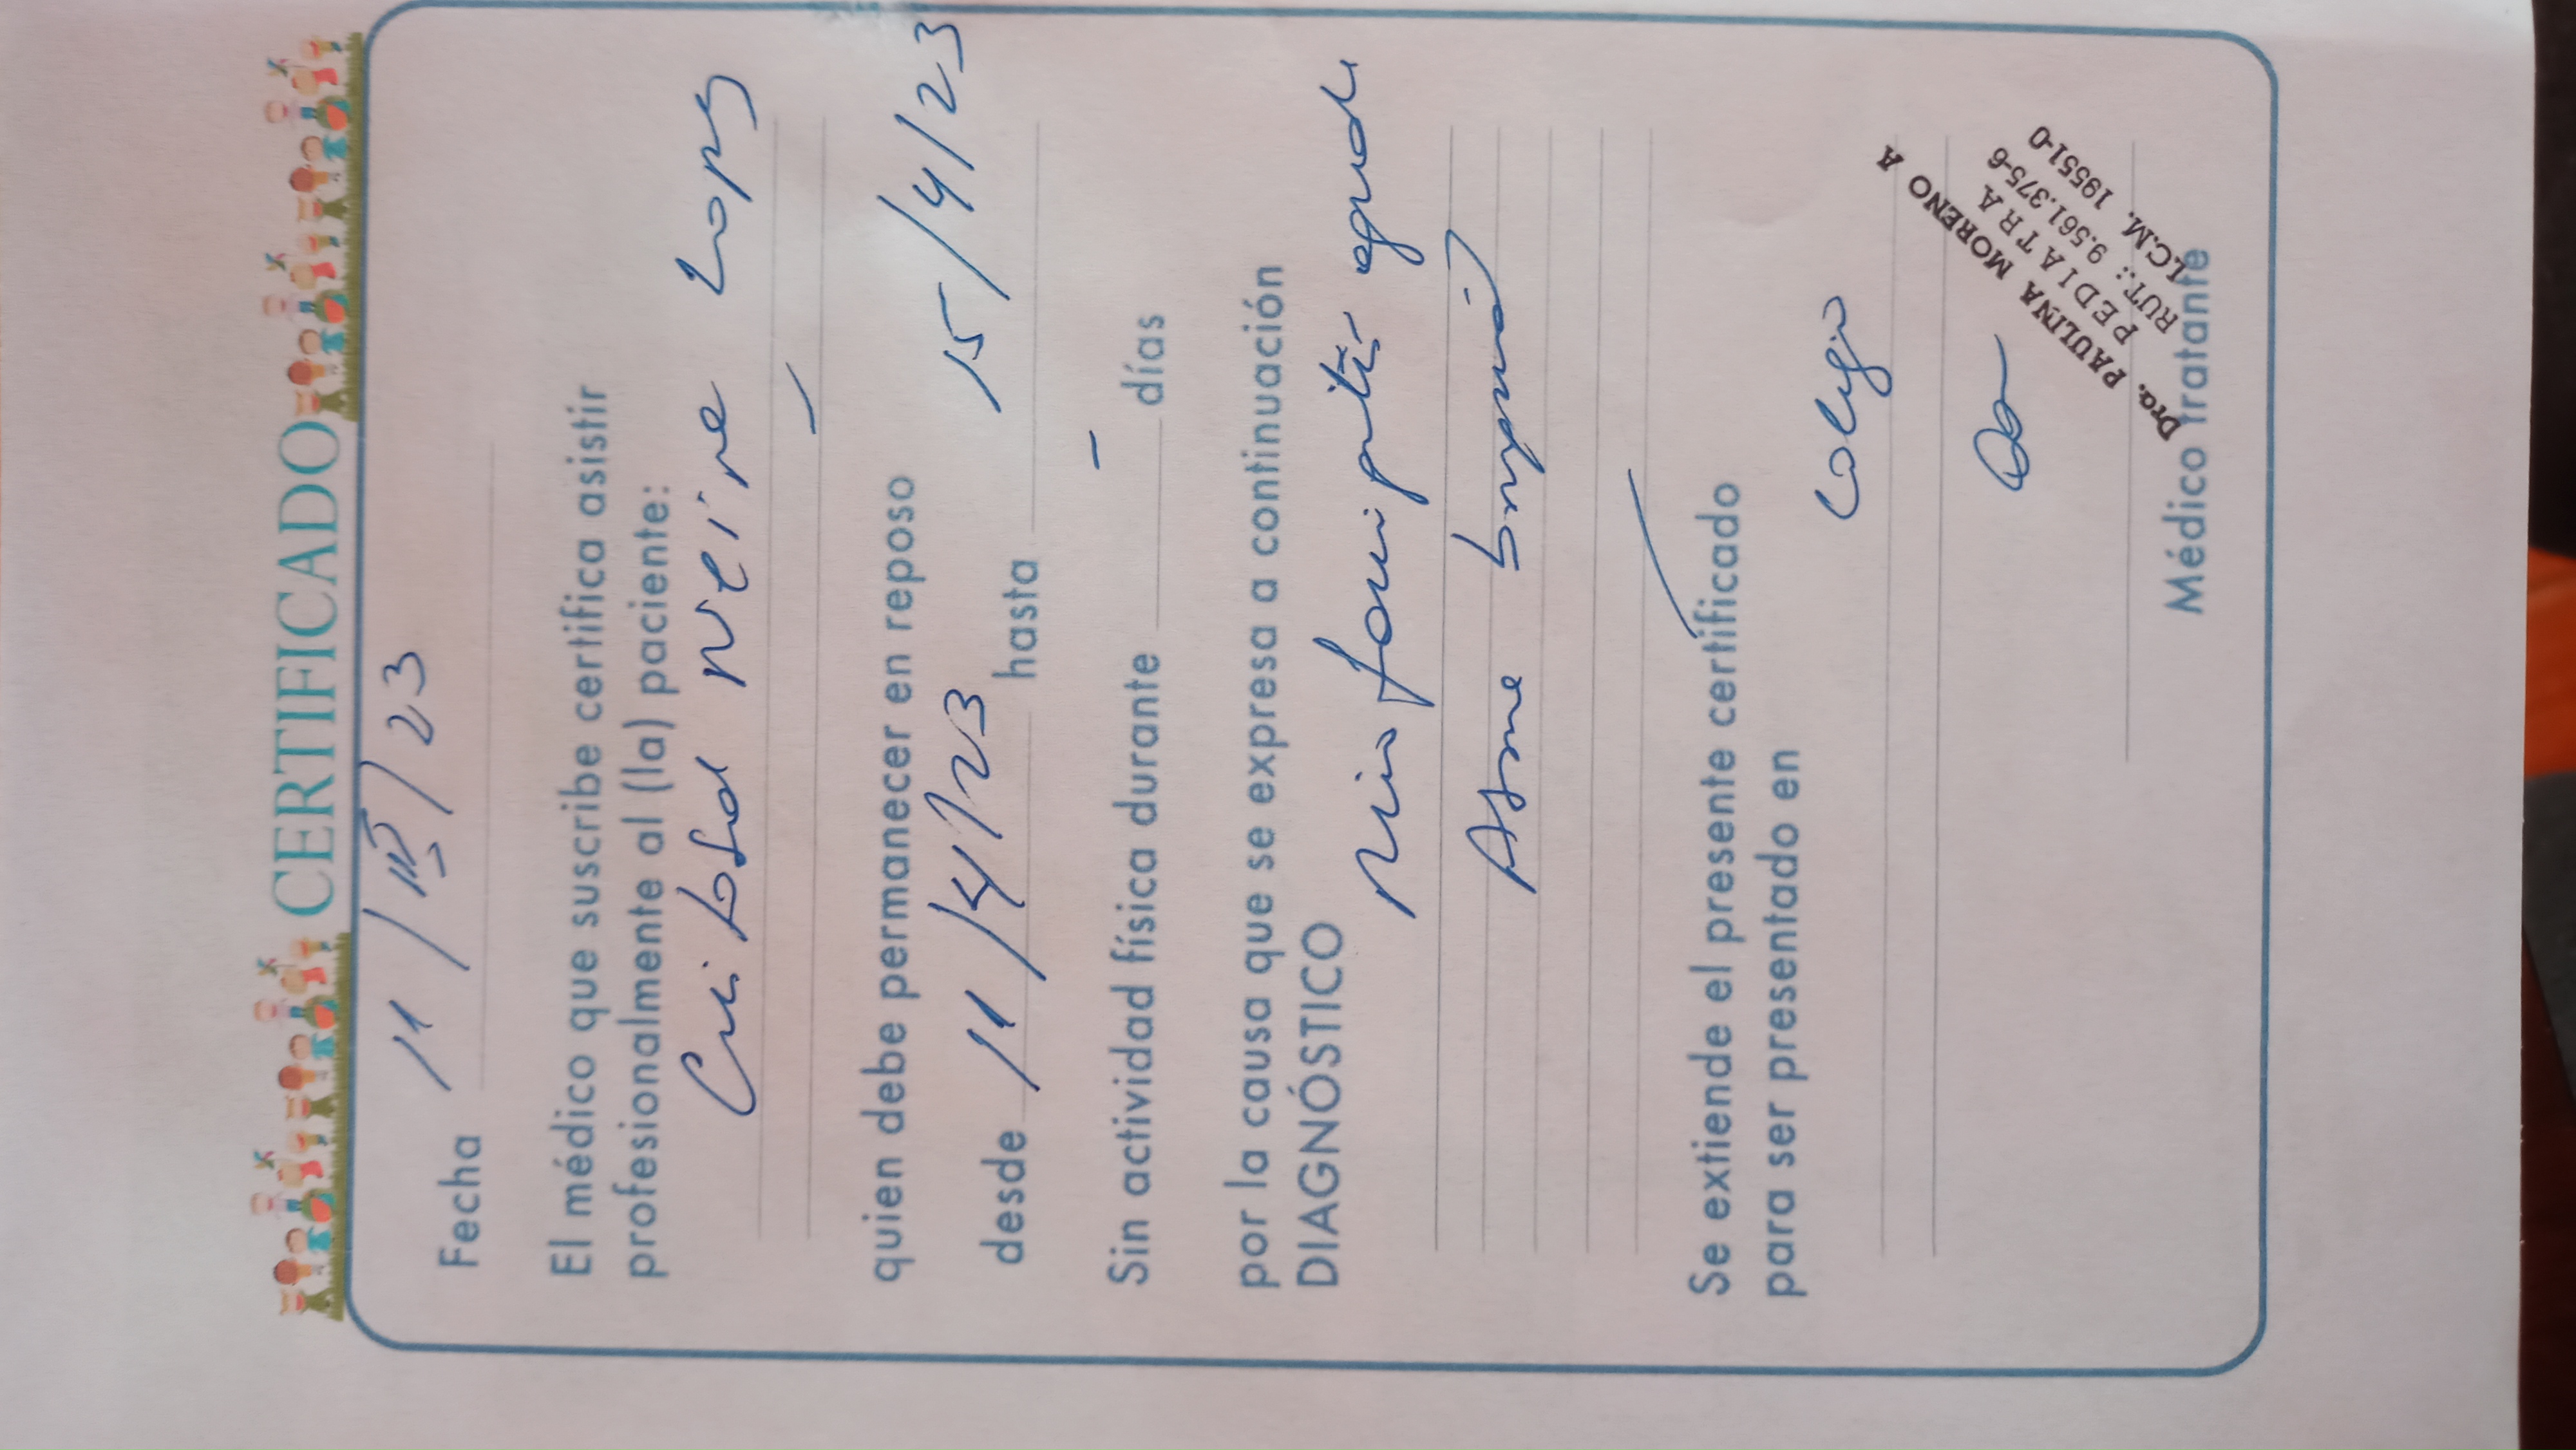 CERTIFICADO
Fecha 11 / IV / 23
El médico que suscribe certifica asistir
profesionalmente al (la) paciente:
Cristobal Neira Lopez
quien debe permanecer en reposo
desde 11/4/23 hasta 15/4/23
Sin actividad física durante - días
por la causa que se expresa a continuación
DIAGNÓSTICO
Rino faringitis aguda
Asma bronquial
Se extiende el presente certificado
para ser presentado en
Colegio
Dra. PAULINA MORENO A
PEDIATRA
RUT.: 9.561.375-6
I.C.M. 19551-0
Médico tratante